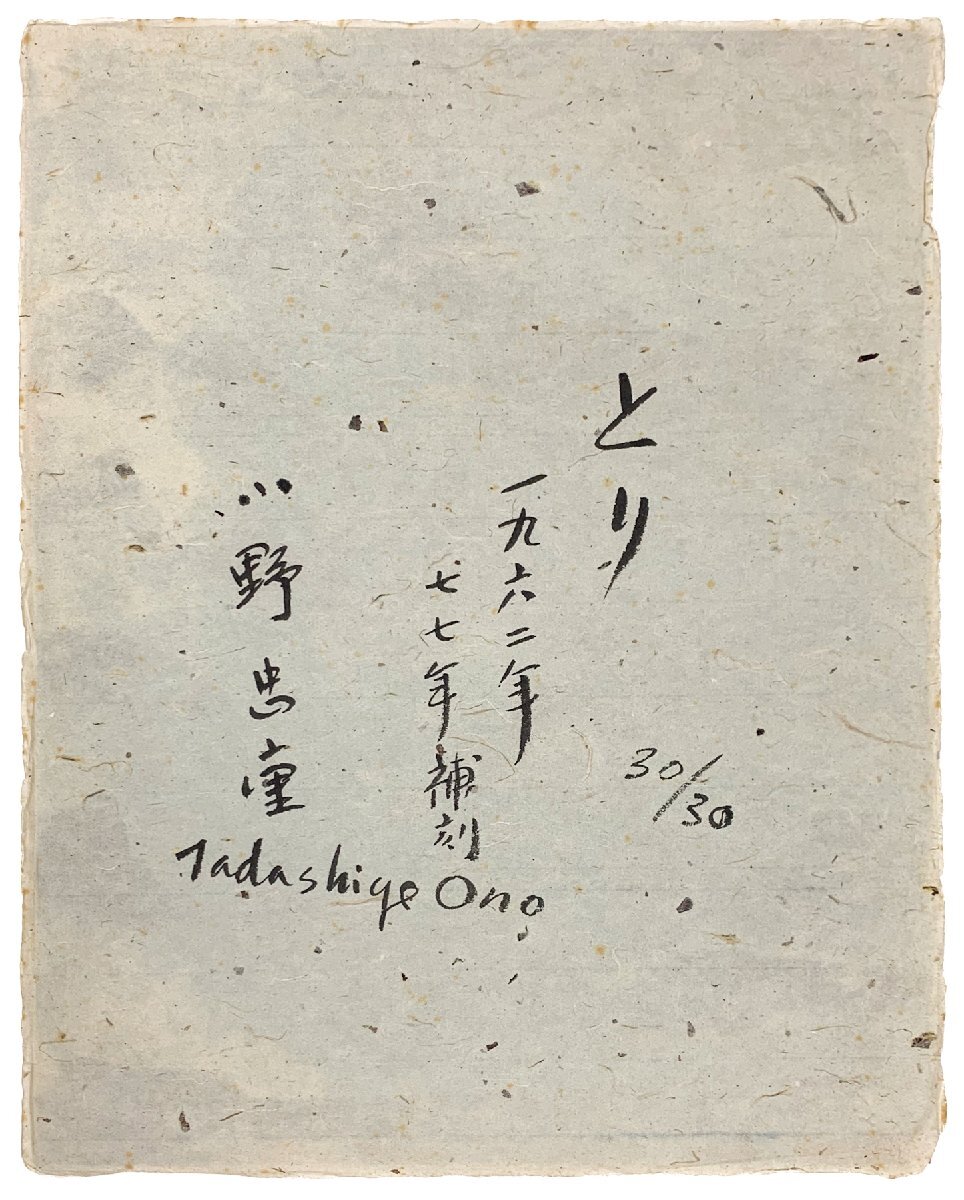 とり
一九六二年
七七年補刻
30/30
小野忠重
Tadashige Ono